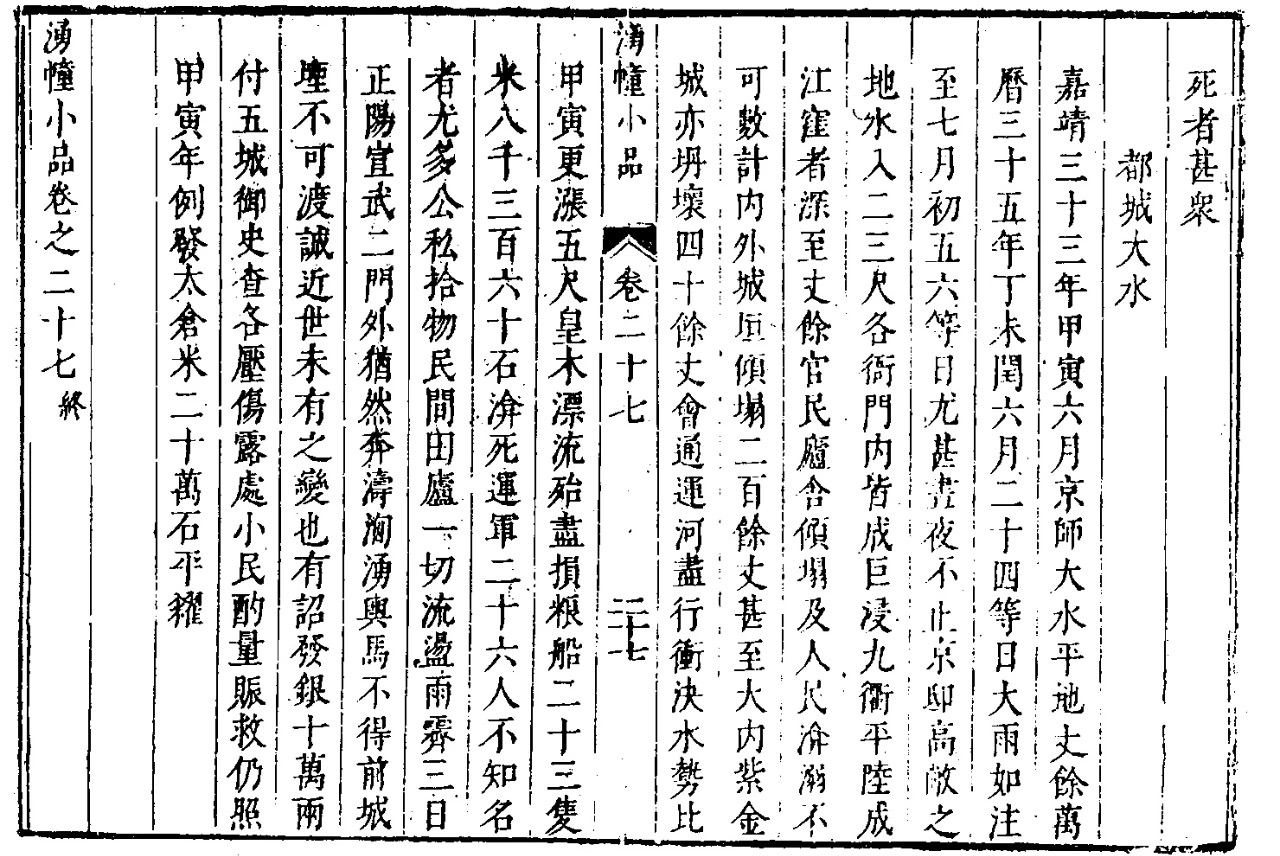 死者甚衆
都城大水
嘉靖三十三年甲寅六月京師大水平地丈餘萬
曆三十五年丁未閏六月二十四等日大雨如注
至七月初五六等日尤甚晝夜不止京邸高敞之
地水入二三尺各衙門内皆成巨浸九衢平陸成
江窪者深至丈餘官民廬舍傾塌及人民渰溺不
可數計内外城垣傾塌二百餘丈甚至大内紫金
城亦坍壞四十餘丈會通運河盡行衝決水勢比
湧幢小品 卷二十七 二十七
甲寅更漲五尺皇木漂流殆盡損粮船二十三隻
米八千三百六十石渰死運軍二十六人不知名
者尤多公私拾物民間田廬一切流盪雨霽三日
正陽宣武二門外猶然奔濤洶湧輿馬不得前城
堙不可渡誠近世未有之變也有詔發銀十萬兩
付五城御史查各壓傷露處小民酌量賑救仍照
甲寅年例發太倉米二十萬石平糴
湧幢小品卷之二十七終